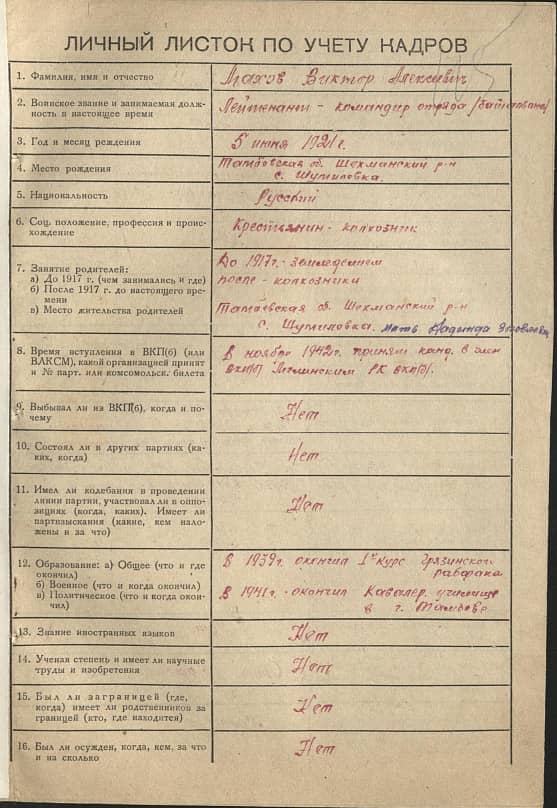 ЛИЧНЫЙ ЛИСТОК ПО УЧЕТУ КАДРОВ
1. Фамилия, имя и отчество
Виктор Алексеевич
2. Воинское звание и занимаемая долж-
ность в настоящее время
Лейтенант - командир отряда
3. Год и месяц рождения
5 июня 1921 г.
4. Место рождения
Тамбовская об. Шехманский р-н
с. Шумиловка.
5. Национальность
Русский
6. Соц. положение, профессия и проис-
хождение
Крестьянин - колхозник
7. Занятие родителей:
а) До 1917 г. (чем занимались и где)
б) После 1917 г. до настоящего вре-
мени
в) Место жительства родителей
До 1917г. - земледелием
после - колхозники
Тамбовская об. Шехманский р-н
с. Шумиловка. мать Надежда Яковлевна
8. Время вступления в ВКП(б) (или
ВЛКСМ), какой организацией принят
и № парт. или комсомольск. билета
В ноябре 1942г. принят канд. в члены
ВКП(б) РК ВКП(б).
9. Выбывал ли из ВКП(б), когда и по-
чему
Нет
10. Состоял ли в других партиях (ка-
ких, когда)
Нет
11. Имел ли колебания в проведении
линии партии, участвовал ли в оппо-
зициях (когда, каких). Имеет ли
партвзыскания (какие, кем нало-
жены и за что)
Нет
12. Образование: а) Общее (что и где
окончил)
б) Военное (что и когда окончил)
в) Политическое (что и когда окон-
чил)
В 1939г. окончил 1й курс Грязинского
рабфака
В 1941г. - окончил Кавалер. училище
в г. Тамбове
13. Знание иностранных языков
Нет
14. Ученая степень и имеет ли научные
труды и изобретения
Нет
15. Был ли заграницей (где,
когда) имеет ли родственников за
границей (кто, где находится)
Нет
16. Был ли осужден, когда, кем, за что
и на сколько
Нет